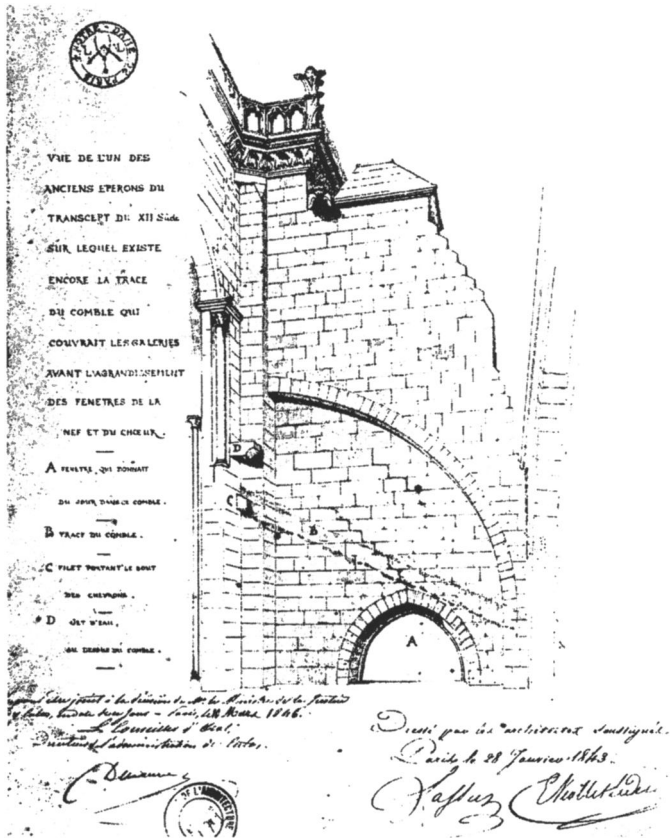 NOTRE-DAME DE PARIS
VUE DE L'UN DES
ANCIENS EPERONS DU
TRANSCEPT DU XII Siècle
SUR LEQUEL EXISTE
ENCORE LA TRACE
DU COMBLE QUI
COUVRAIT LES GALERIES
AVANT L'AGRANDISSEMENT
DES FENETRES DE LA
NEF ET DU CHŒUR.
A FENETRE, QUI DONNAIT
DU JOUR DANS CE COMBLE.
B TRACE DU COMBLE.
C FILET PORTANT LE BOUT
DES CHEVRONS.
D JET D'EAU,
AU DESSUS DU COMBLE.
D
C
B
A
joint à la décision de Mr. le Ministre de la Justice
Paris, le Mars 1846.
Le Conseiller d'Etat,
Directeur de l'administration des Cultes,
Dressé par les architectes soussignés.
Paris le 28 Janvier 1843.
Lassus
E Viollet Le Duc
DE L'ARCHITECTURE